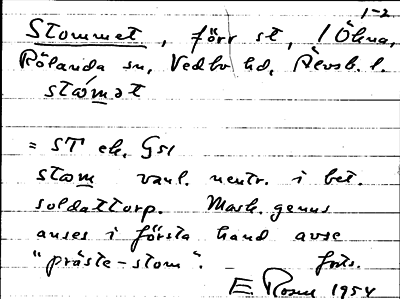 1-2
Stommet, förr st, i Ökna,
Rölanda sn, Vedbo hd, Älvsb. l.
stòmǝt
= ST ek. Gsl
stom vanl. neutr. i bet.
soldattorp. Mask. genus
anses i första hand avse
"präste-stom". forts.
E Rosen 1954